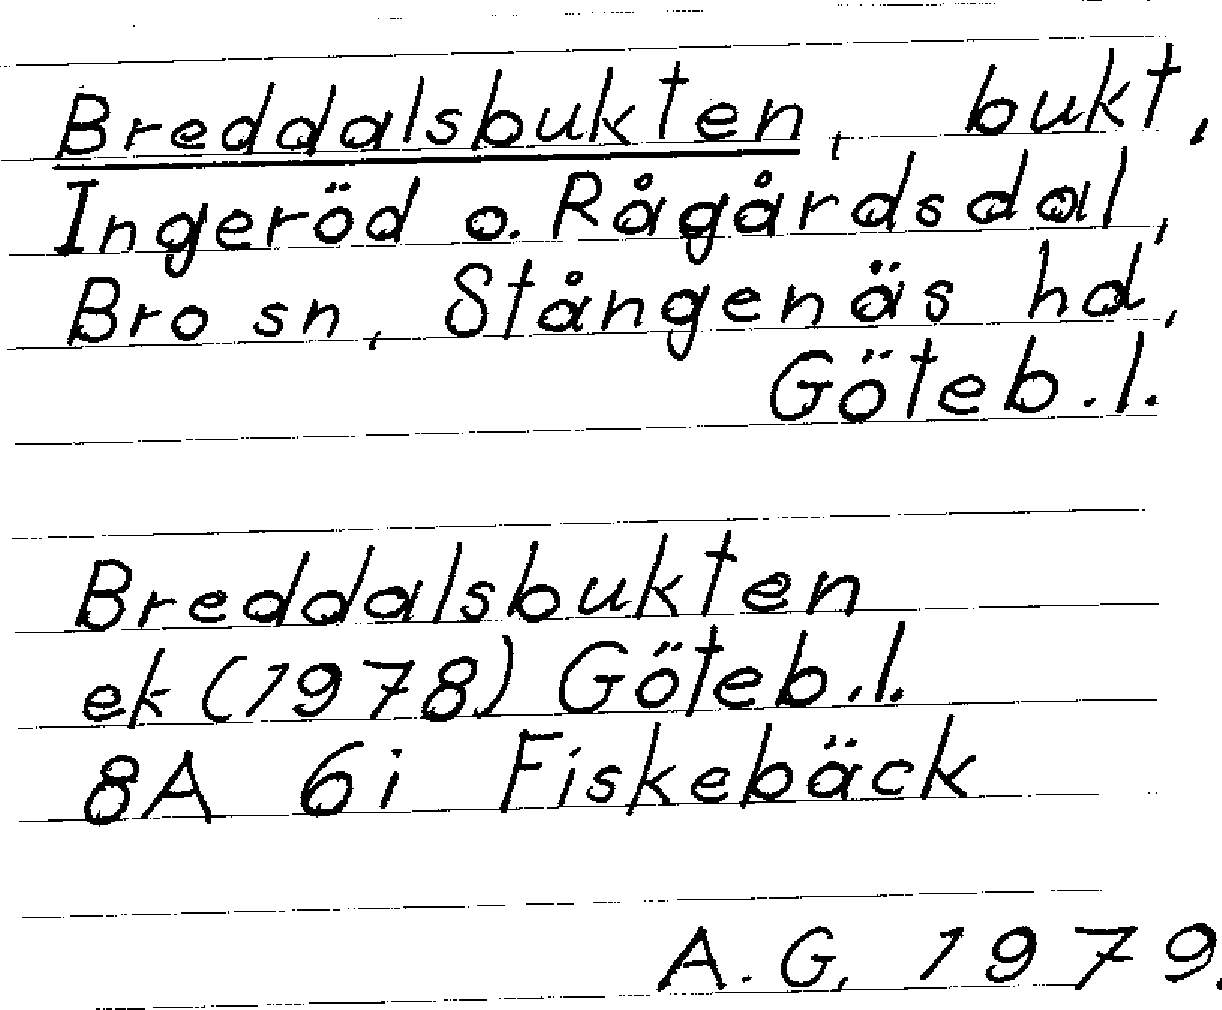 Breddalsbukten, bukt,
Ingeröd o. Rågårdsdal,
Bro sn, Stångenäs hd,
Göteb.l.
Breddalsbukten
ek (1978) Göteb.l.
8A 6i Fiskebäck
A.G. 1979.